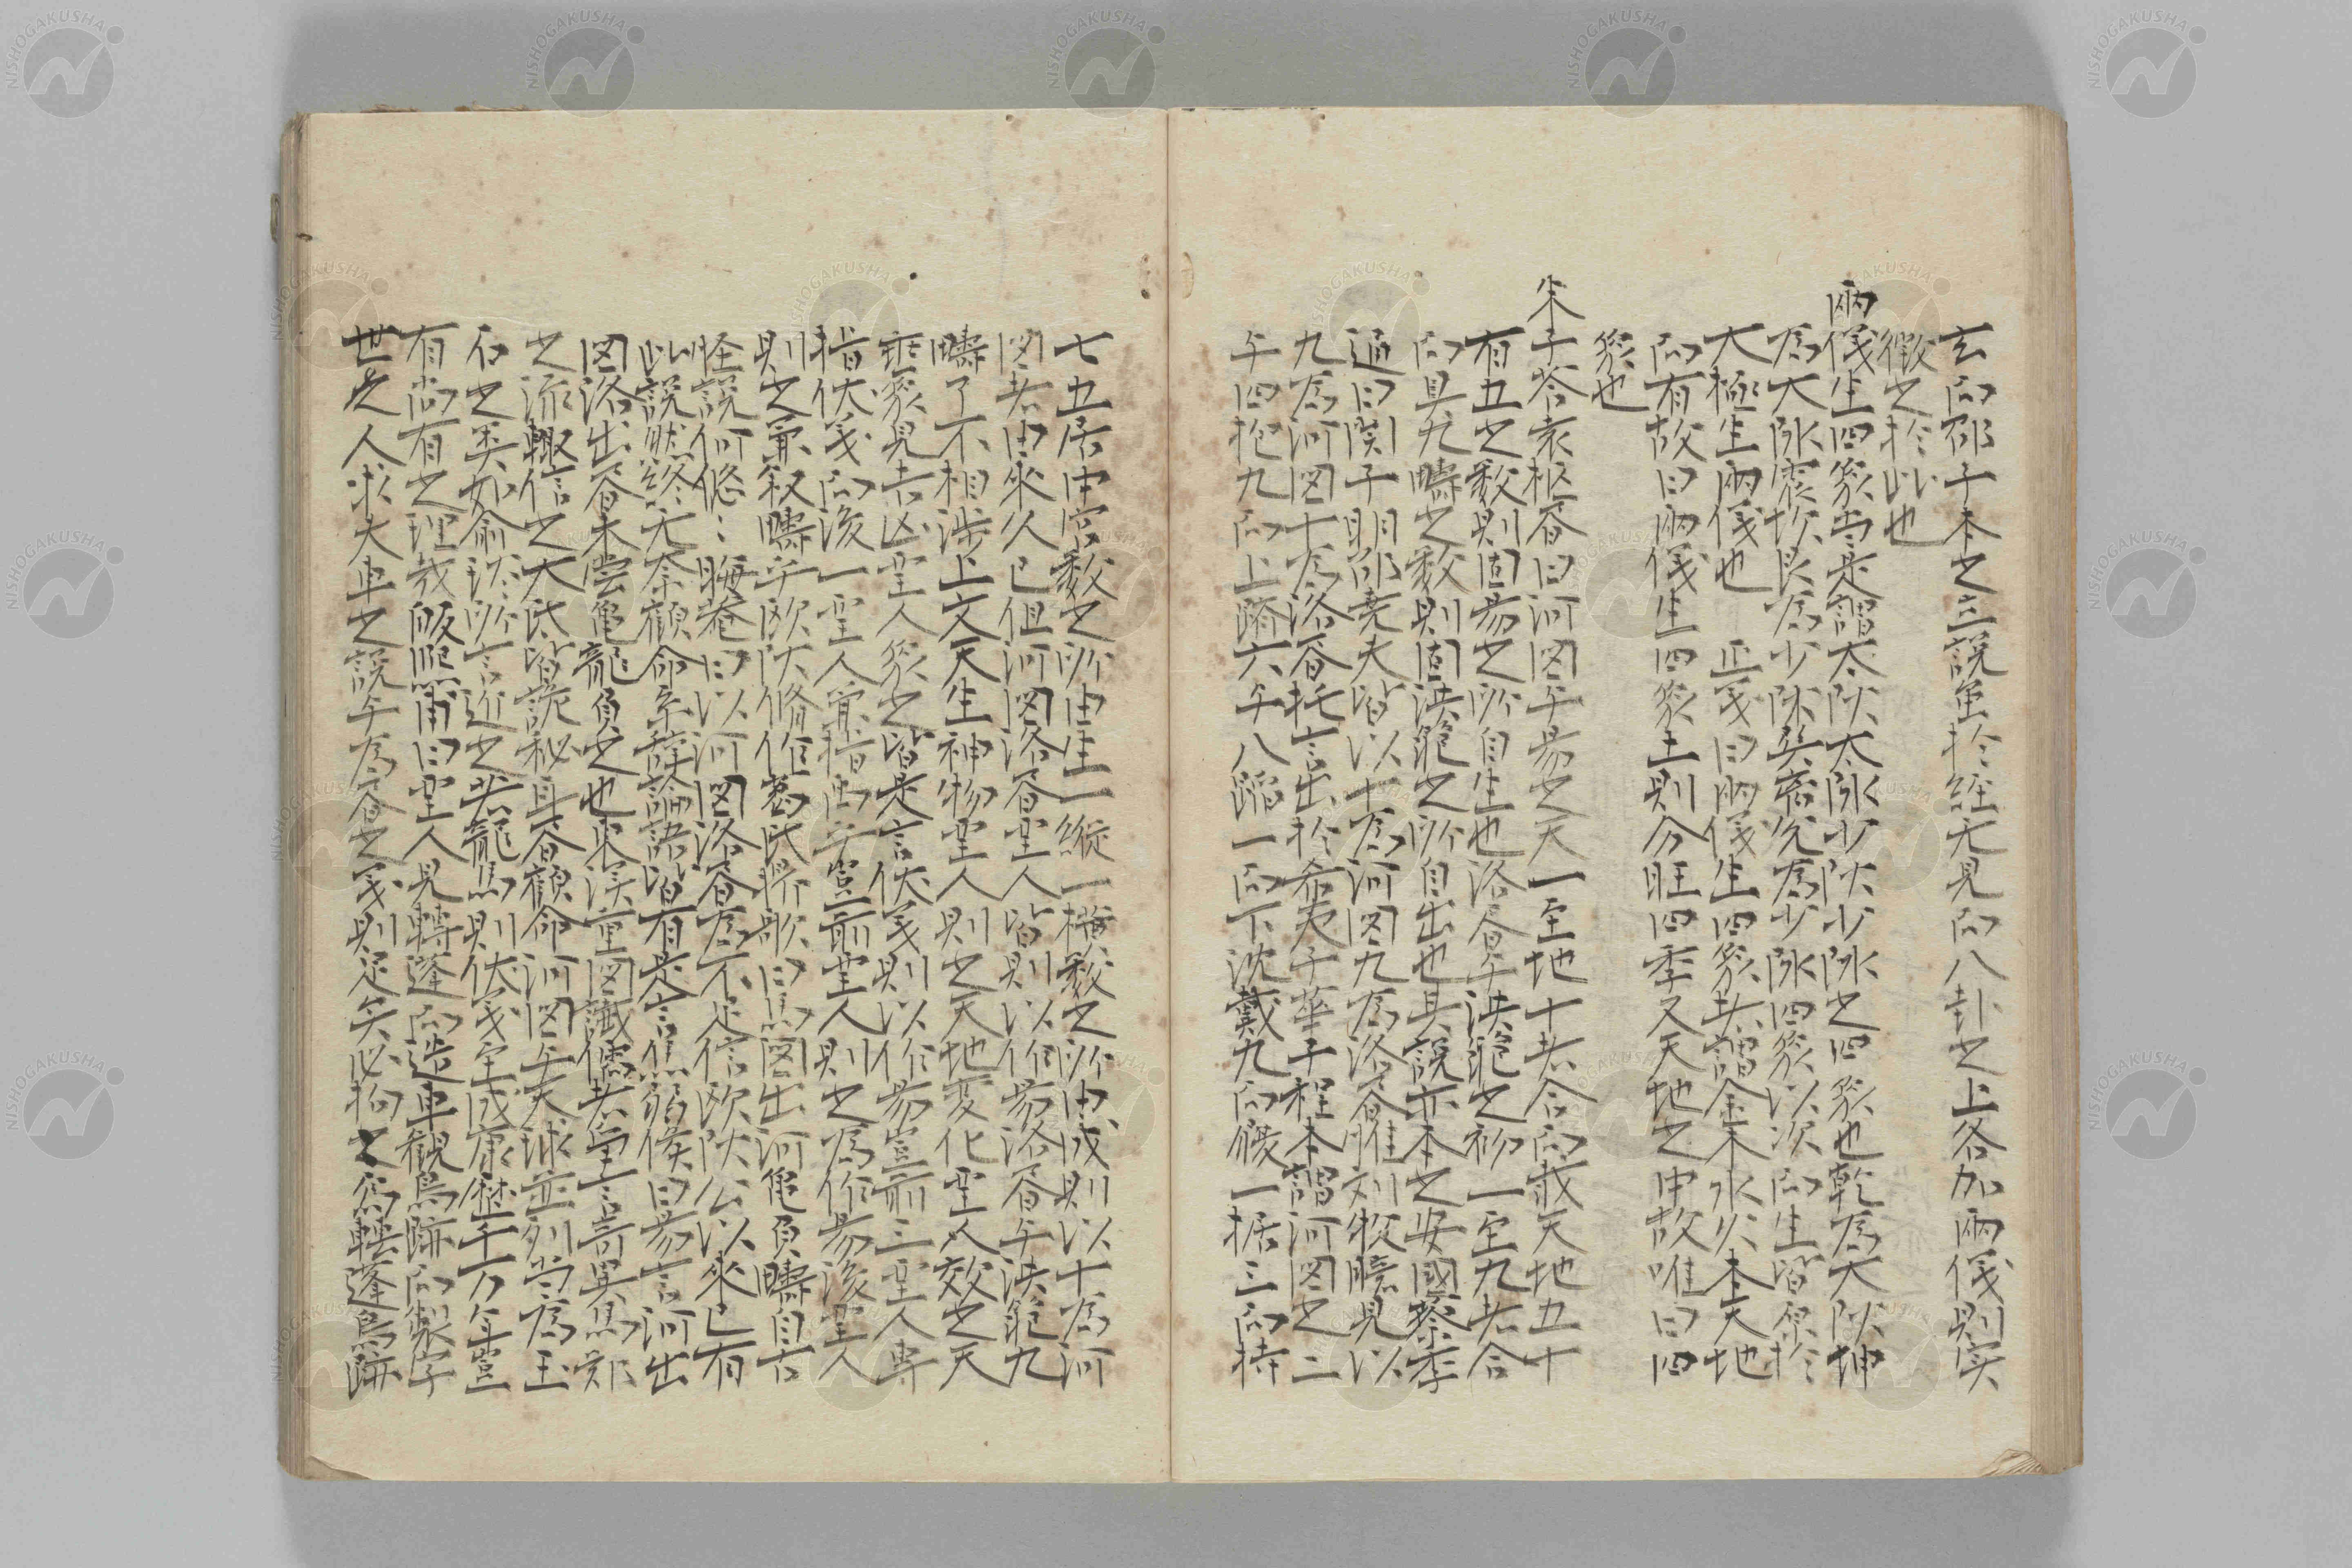 玄而邵子本之立說虽於経无見而八卦之上各加兩儀則实
徵之於此也
兩儀生四象専是謂太陽太陰少陽少陰之四象也乾為大陽坤
為大陰震坎艮為少陽巽离兊為少陰四象以次而生皆原於
大極生兩儀也　正義曰兩儀生四象共謂金木水火本天地
而有故曰兩儀生四象土則分旺四季又天地之中故唯曰四
象也
朱子答袁枢書曰河図与易之天一至地十者合而載天地五十
有五之数則固易之所自生也洛書与洪範之初一至九者合
而具九疇之数則固洪範之所自出也其說亦本之安國蔡季
通曰関子明邵尭夫皆以十為河図九為洛書惟刘牧臆見以
九為河図十為洛書托言出於希夷子華子程本謂河図之二
与四抱九而上躋六与八蹈一而下沈戴九而履一据三而持
七五居中宮数之所由生一縦一横数之所由成則以十為河
図者由来久已但河図洛書聖人皆則以作易洛書与洪範九
疇了不相涉上文天生神物聖人則之天地変化聖人效之天
垂象見吉凶聖人象之皆是言伏羲則以作易豈前三聖人専
指伏羲而後一聖人兼指禹乎豈前聖人則之為作易後聖人
則之兼叙疇乎欧陽脩作葛氏將歌曰馬図出河亀負疇自古
怪說何悠〻晦菴曰以河図洛書為不足信欧陽公以来已有
此說然終无奈顧命系辞論語皆有是言焦弱侯曰易言河出
図洛出書未嘗亀龍負之也東漢重図讖儒者室言奇異馬鄭
之流輙信之大氐皆詭秘耳書顧命河図与天球並列当為玉
石之类如俞汝所言近之若龍馬則伏羲至成康歴千万年豈
有尚有之理哉販熙甫曰聖人見轉蓬而造車観鳥跡而製字
世之人求大車之說与為書之義則足矣必拘之為転蓬鳥跡